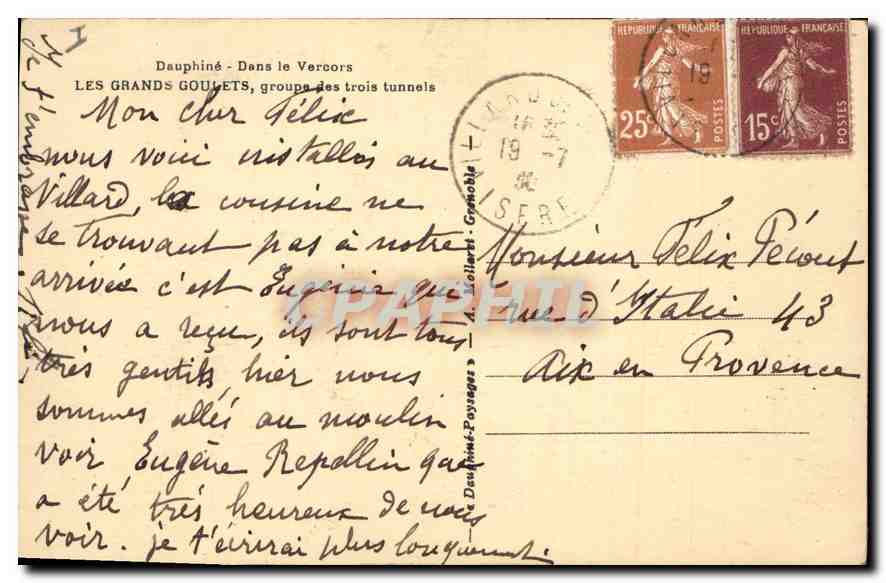 Dauphiné - Dans le Vercors
LES GRANDS GOULETS, groupe des trois tunnels
Mon cher Félix
nous voici installés au
Villard, la cousine ne
se trouvant pas à notre
arrivée c'est Eugénie qui
nous a reçu, ils sont tous
très gentils, hier nous
sommes allés au moulin
voir Eugène Repellin que
a été très heureux de nous
voir. je t'écrirai plus longuement.
Je t'embrasse
« Dauphiné-Paysages » — A. Mollaret - Grenoble
19 -7
ISERE
REPUBLIQUE FRANÇAISE
25c
POSTES
REPUBLIQUE FRANÇAISE
15c
POSTES
19
Monsieur Félix Pécout
rue d'Italie 43
Aix en Provence
CPAPHIL